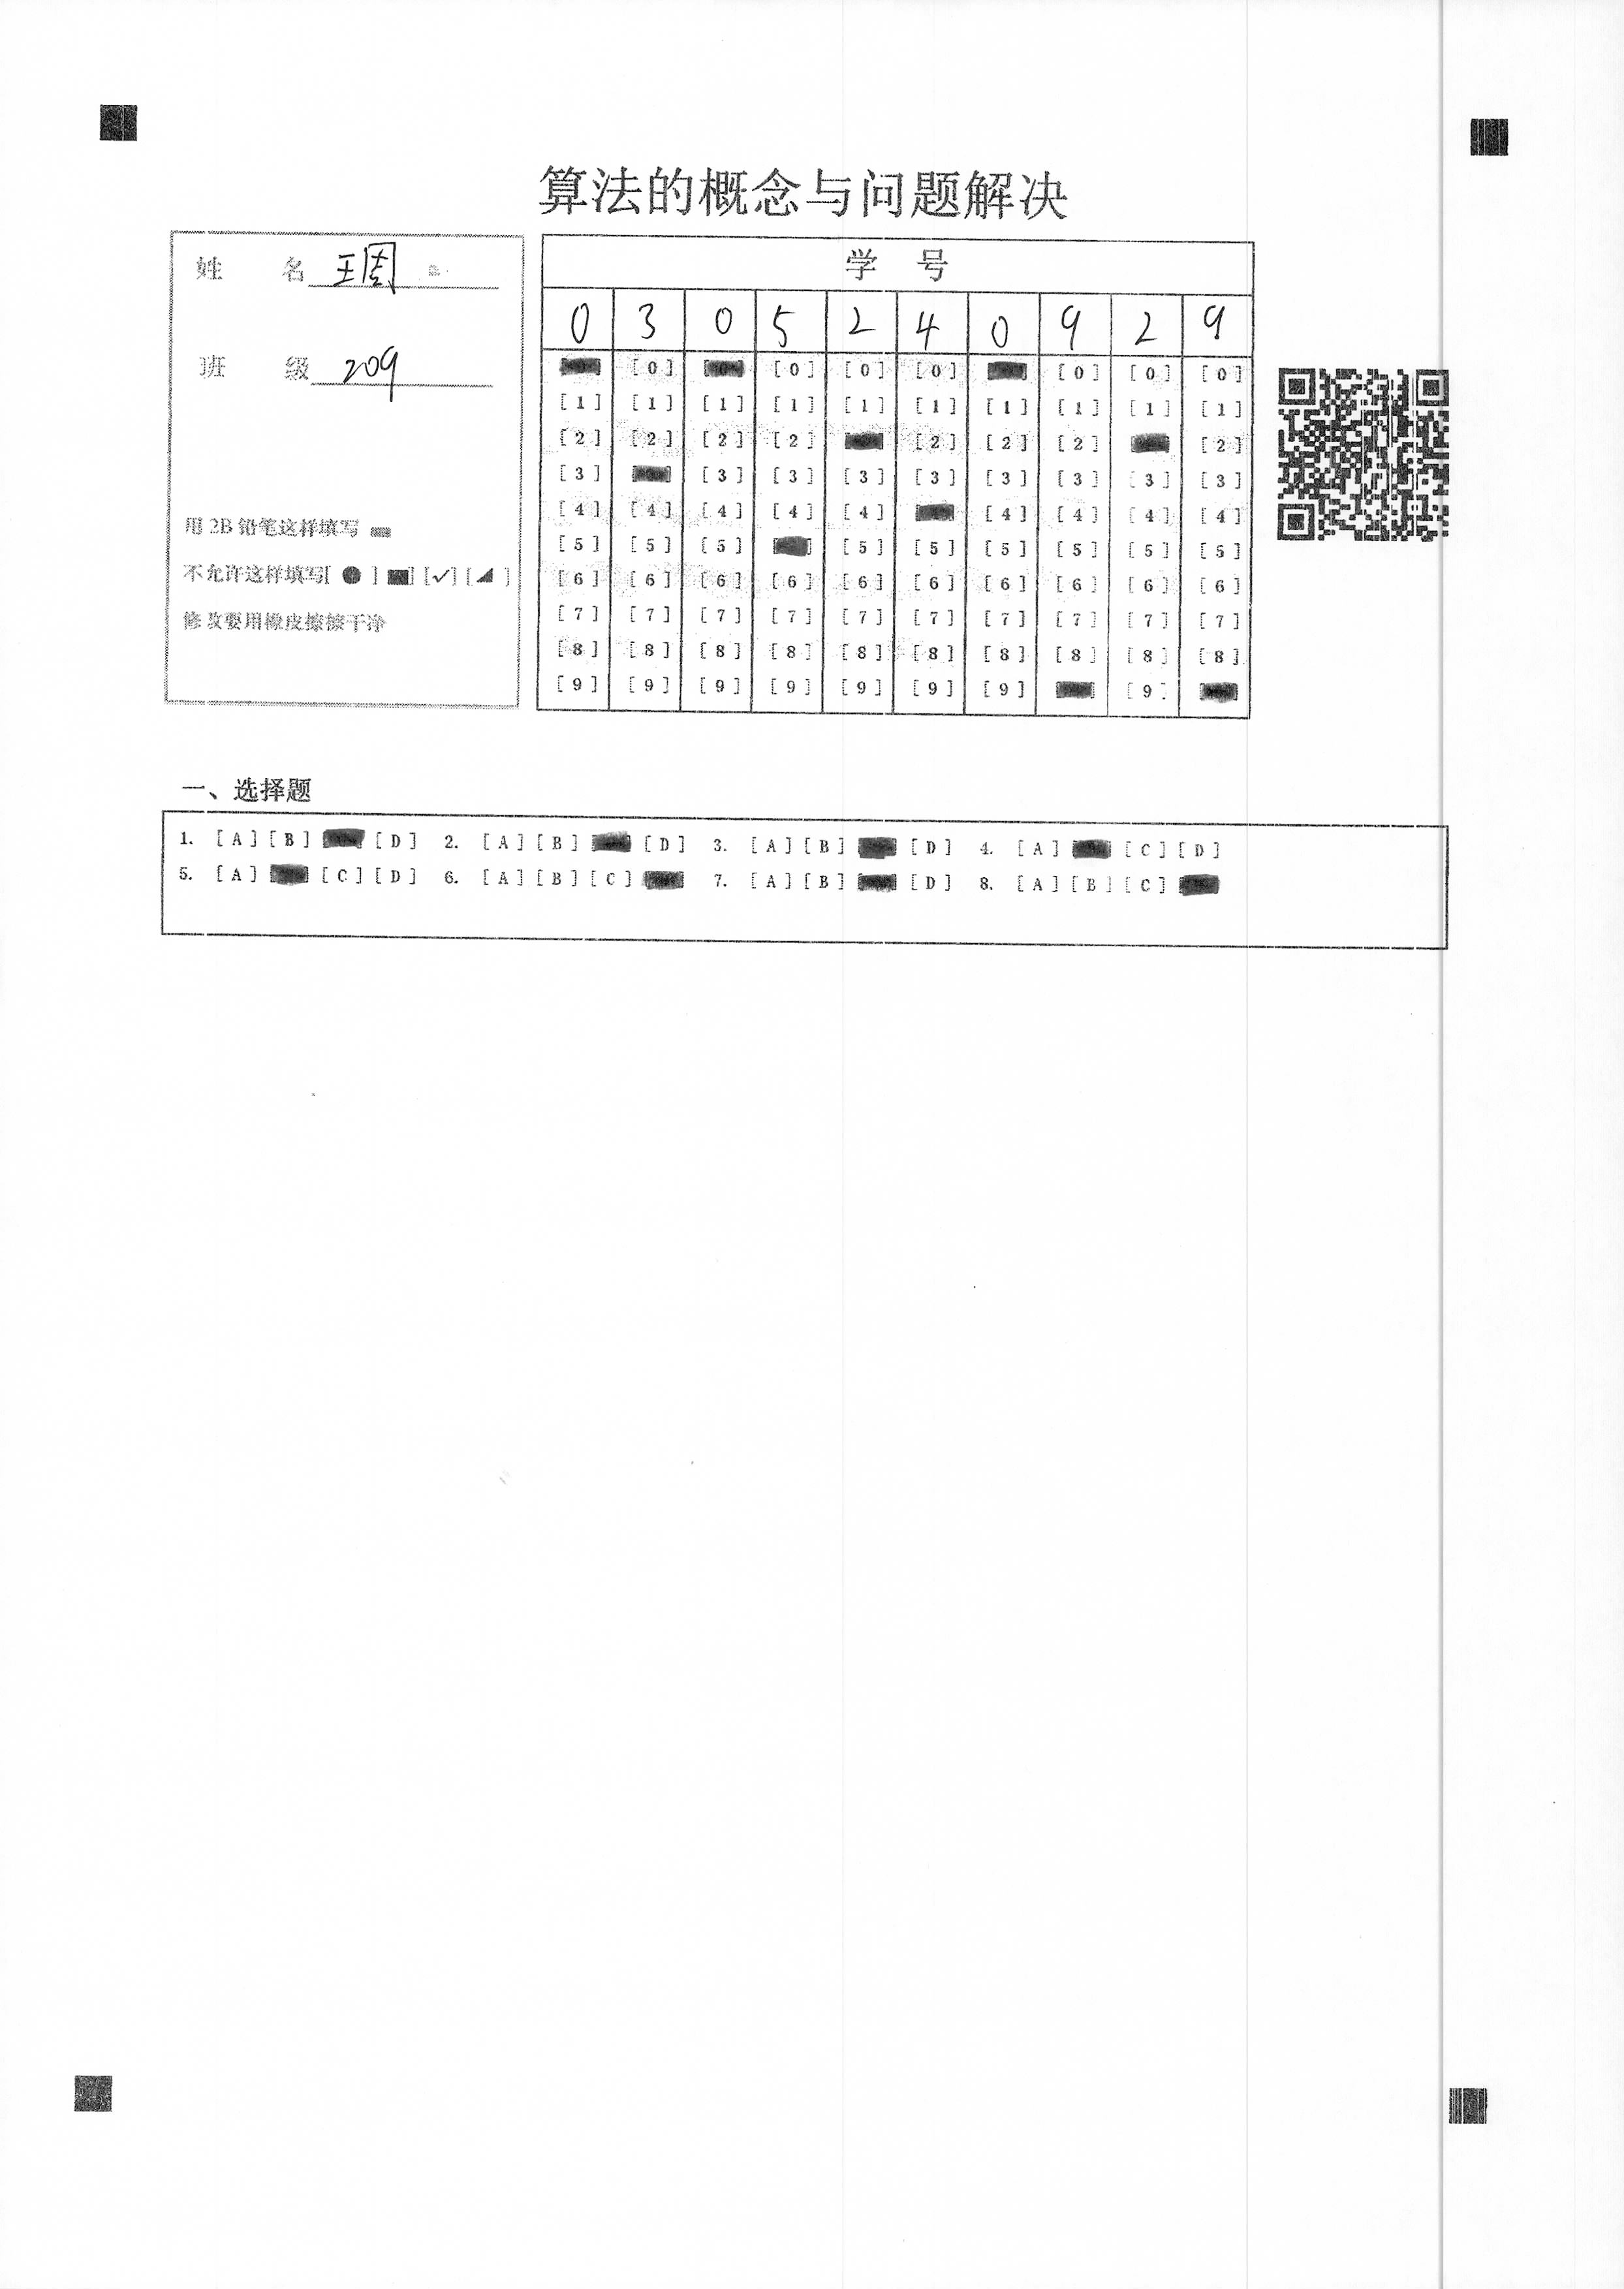 算法的概念与问题解决
姓 名 王周
班 级 209
用 2B 铅笔这样填写
不允许这样填写[ ● ] ■] [✓] [◢ ]
修改要用橡皮擦擦干净
学 号
0 3 0 5 2 4 0 9 2 9
[0] [0] [0] [0] [0] [0] [0]
[1] [1] [1] [1] [1] [1] [1] [1] [1] [1]
[2] [2] [2] [2] [2] [2] [2] [2]
[3] [3] [3] [3] [3] [3] [3] [3] [3]
[4] [4] [4] [4] [4] [4] [4] [4] [4]
[5] [5] [5] [5] [5] [5] [5] [5] [5]
[6] [6] [6] [6] [6] [6] [6] [6] [6] [6]
[7] [7] [7] [7] [7] [7] [7] [7] [7] [7]
[8] [8] [8] [8] [8] [8] [8] [8] [8] [8]
[9] [9] [9] [9] [9] [9] [9] [9]
一、选择题
1. [A] [B] [D] 2. [A] [B] [D] 3. [A] [B] [D] 4. [A] [C] [D]
5. [A] [C] [D] 6. [A] [B] [C] 7. [A] [B] [D] 8. [A] [B] [C]